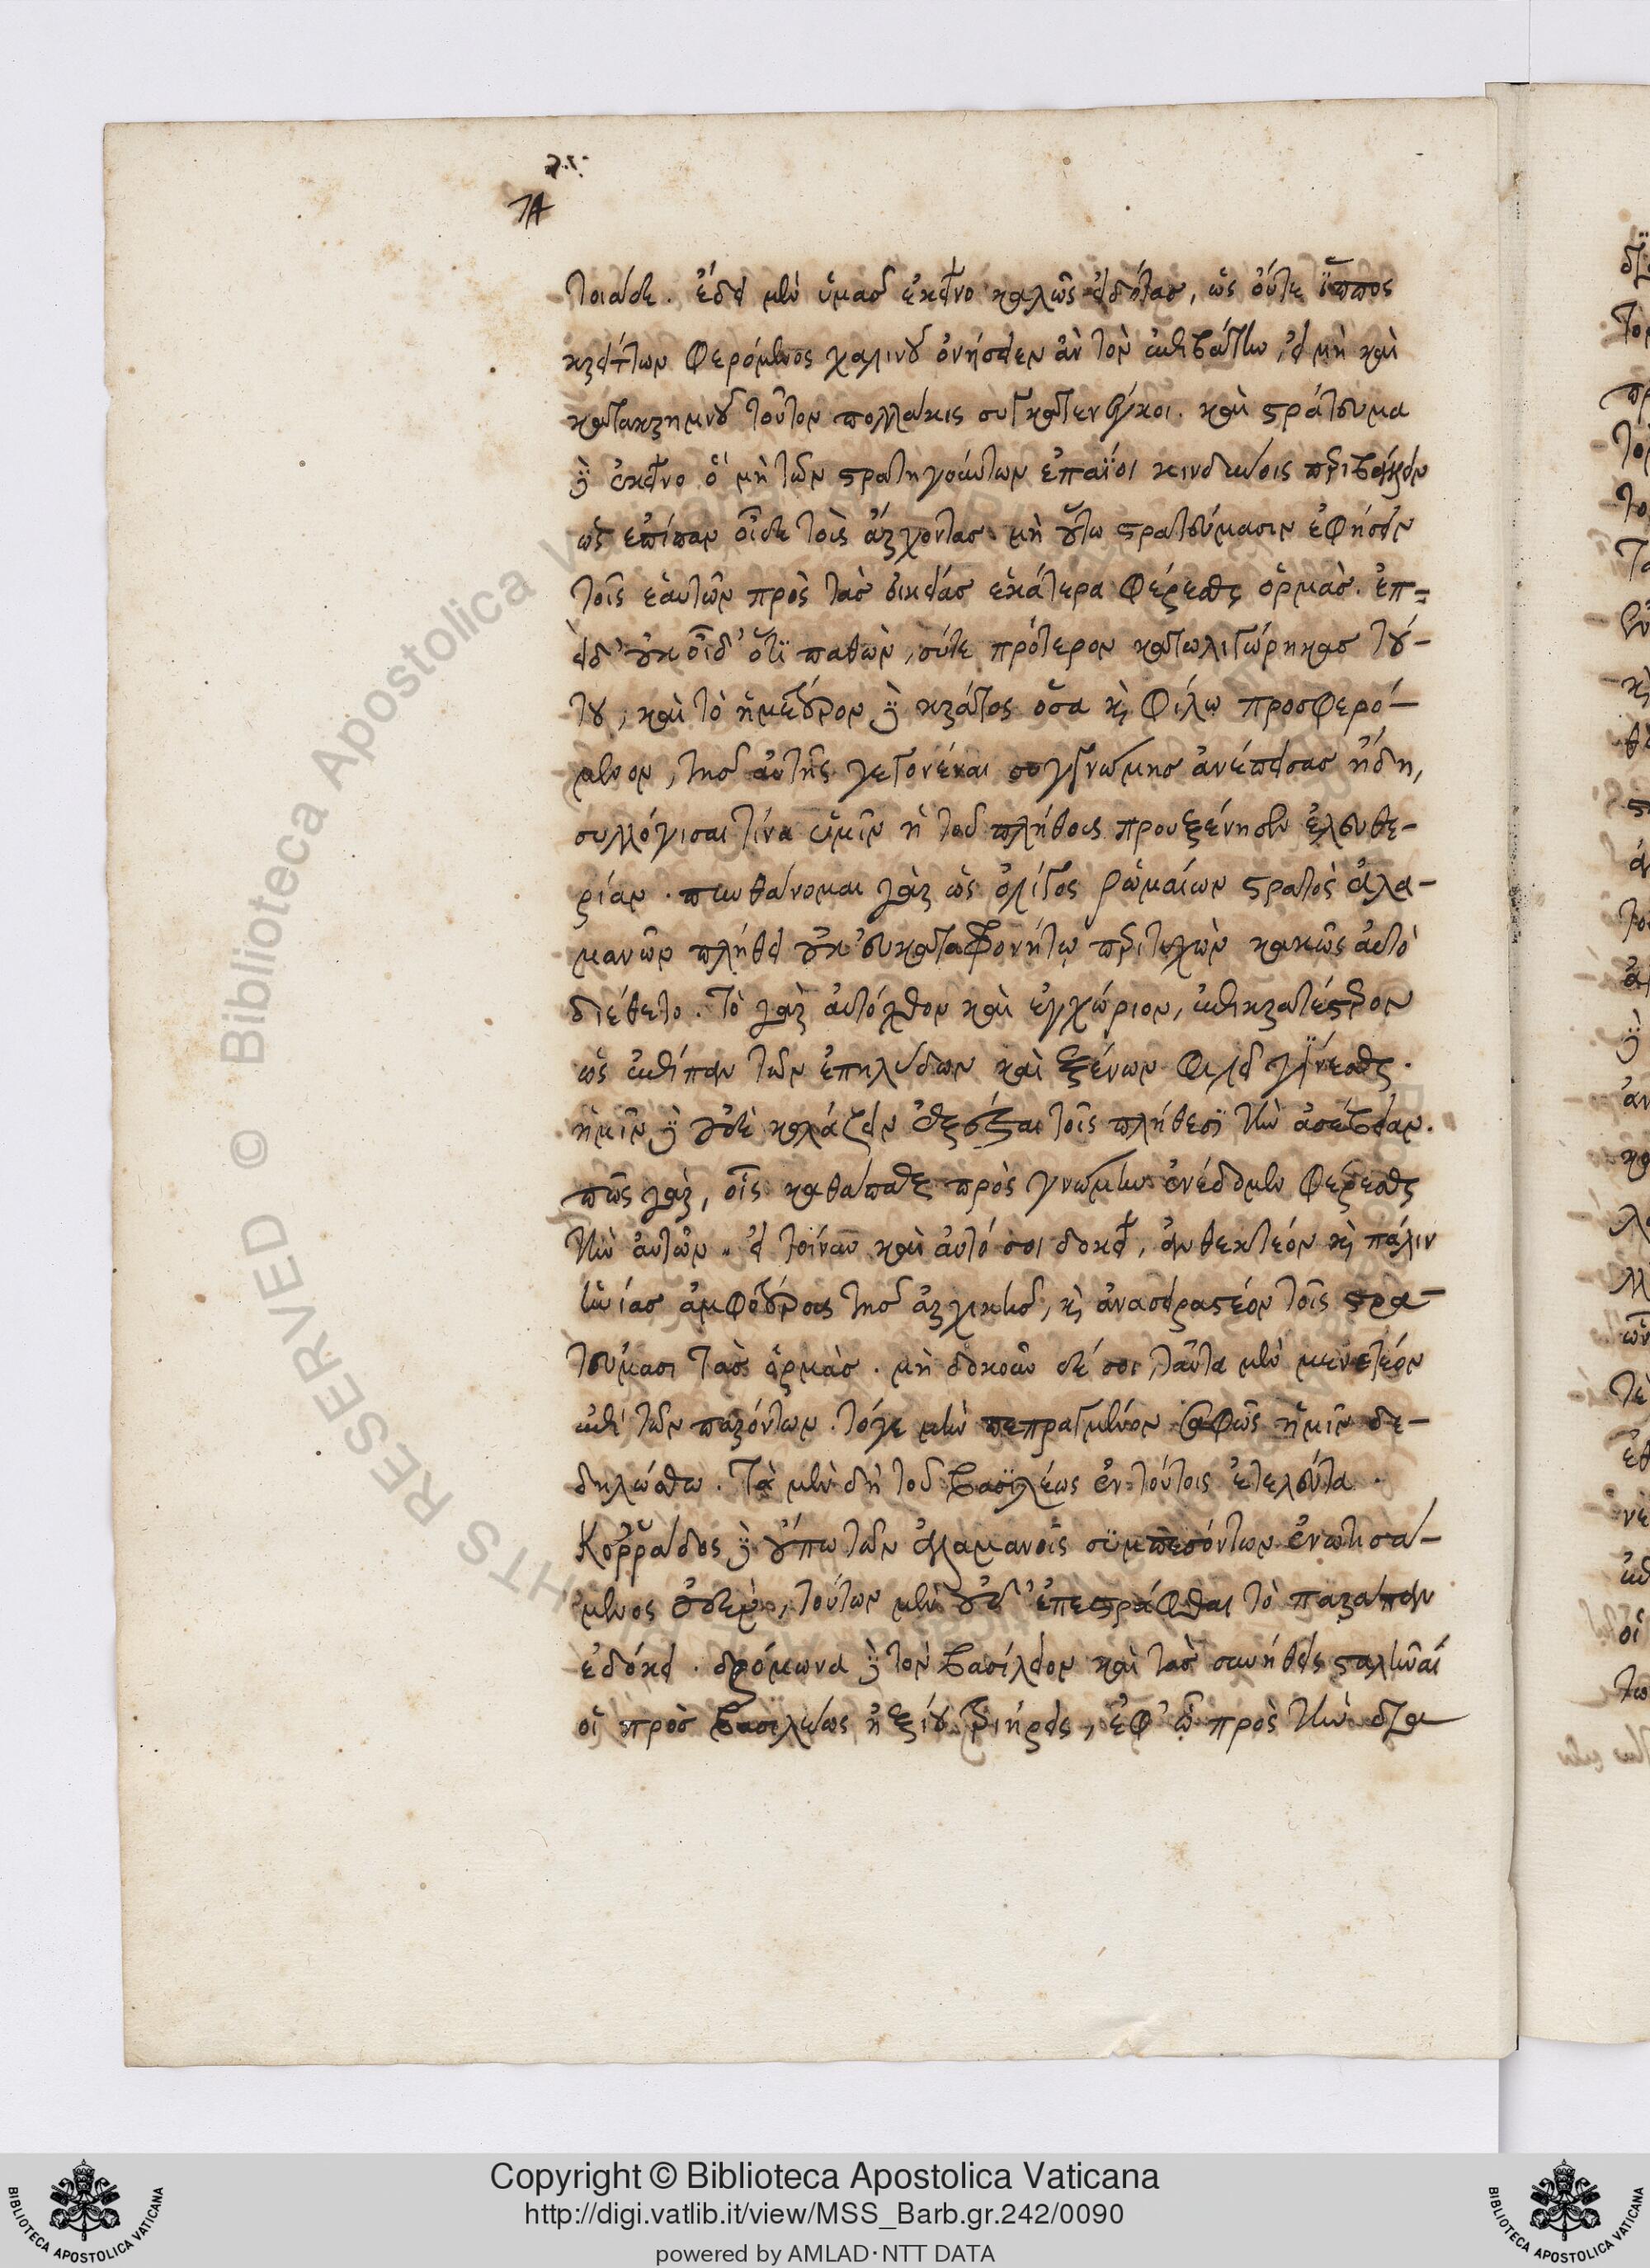 τοιάδε. ἔδει μὲν ὑμᾶς ἐκεῖνο καλῶς εἰδότας, ὡς οὔτε ἵππος
κρείττων φερόμενος χαλινοῦ ὀνήσειεν ἂν τὸν ἐπιβάτην, εἰ μὴ καὶ
κατακρημνοῦ τοῦτον πολλάκις συγκατενέγκοι. καὶ στράτευμα
δὲ ἐκεῖνο ὃ μὴ τῶν στρατηγούντων ἐπαΐοι κινδύνοις περιβάλλειν
ὡς ἐπίπαν οἶδε τοὺς ἄρχοντας. μὴ οὕτω στρατεύμασιν ἐφήσειν
τοῖς ἑαυτῶν πρὸς τὰς οἰκείας ἑκάτερα φέρεσθαι ὁρμάς. ἐπ=
εὶ δ' οὐκ οἶδ' ὅτι παθὼν, σύτε πρότερον κατωλιγώρηκας τού-
του, καὶ τὸ ἡμέτερον δὲ κράτος ὅσα καὶ φίλῳ προσφερό-
μενον, τῆς αὐτῆς γεγονέναι συγγνώμης ἀνέπεισας ἤδη,
συλλόγισαι τίνα ὑμῖν ἡ τοῦ πλήθους προυξένησεν ἐλευθε-
ρίαν. πυνθάνομαι γὰρ ὡς ὀλίγος ῥωμαίων στρατὸς ἀλα-
μανῶν πλήθει οὐκ εὐκαταφρονήτῳ περιτυχὼν κακῶς αὐτὸ
διέθετο. τὸ γὰρ αὐτόχθον καὶ ἐγχώριον, ἐπικρατέστερον
ὡς ἐπίπαν τῶν ἐπηλύδων καὶ ξένων φιλεῖ γίνεσθαι.
ἡμῖν δὲ οὐδὲ κολάζειν ἔξεσται τοῖς πλήθεσι τὴν ἀσέβειαν.
πῶς γὰρ, οἷς καθάπαξ πρὸς γνώμην ἐνέδομεν φέρεσθαι
τὴν αὐτῶν. εἰ τοίνυν καὶ αὐτό σοι δοκεῖ, ἀνθεκτέον καὶ πάλιν
ἡνίας ἀμφοτέρους τῆς ἀρχικῆς, καὶ ἀνασειραστέον τοῖς στρα-
τεύμασι τὰς ὁρμάς. μὴ δοκοῦν δέ σοι, ταῦτα μὲν μενετέον
ἐπὶ τῶν παρόντων. τόγε μὲν πεπραγμένον σαφῶς ἡμῖν δε-
δηλώσθω. Τὰ μὲν δὴ τοῦ βασιλέως ἐν τούτοις ἐτελεύτα.
Κορράδος δὲ οὔπω τῶν ἀλαμανοῖς συμπεσόντων ἐνωτισά-
μενος οὐδὲν, τούτων μὲν οὐδ' ἐπεστράφθαι τὸ παράπαν
ἐδόκει. δρόμωνα δὲ τὸν βασίλειον καὶ τὰς συνήθεις σταλῆναί
οἱ πρὸς βασιλέως ἠξίου τριήρεις, ἐφ' ᾧ πρὸς τὴν δια
Copyright © Biblioteca Apostolica Vaticana
http://digi.vatlib.it/view/MSS_Barb.gr.242/0090
powered by AMLAD·NTT DATA